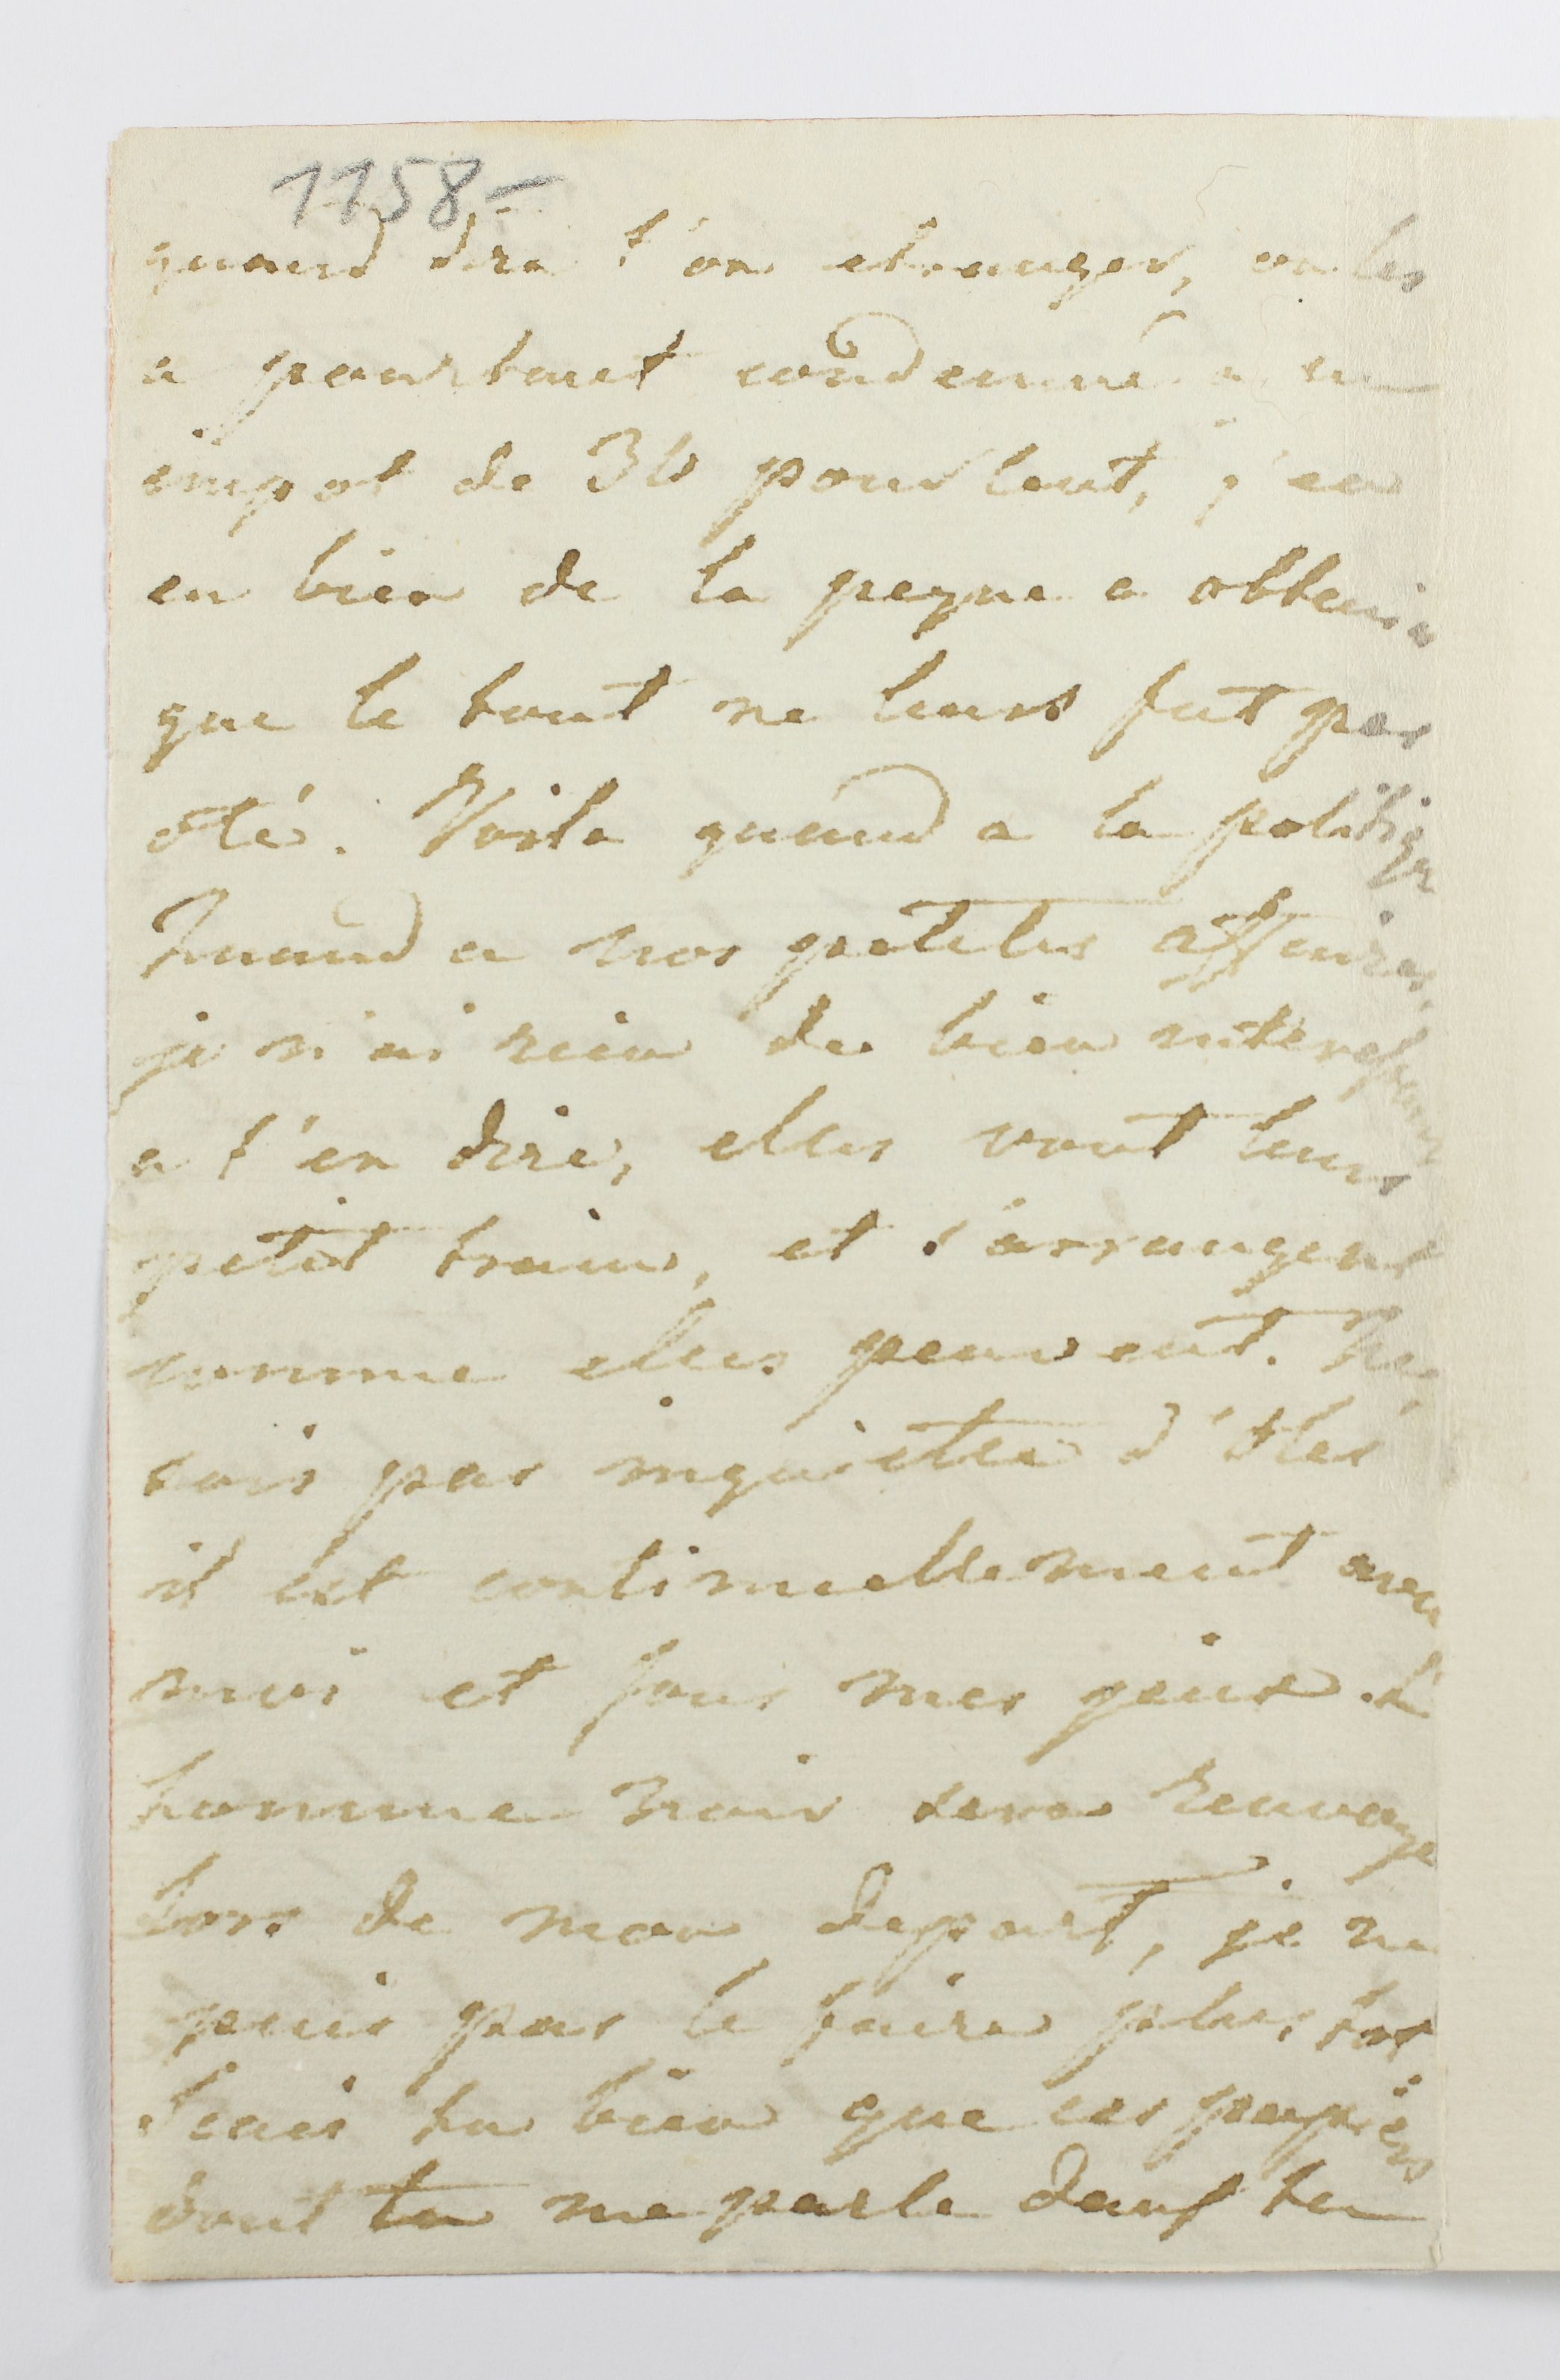 1158-
quand dira t'on etranger, on les
a pourtant condemné a un
impot de 36 pour tent, j'en
eu bien de la peyne a obtenir
que le tout ne leurs fut pas
oté. Voila quand a la politique
Quand a nos petites affaires,
je n'ai rien de bien interessant
a t'en dire, elles vont leurs
petit train, et s'arrangent
comme elles peuvent. Ne
sois pas inquiette d'
il est continuellement avec
moi et sous mes yeux. L'
homme noir sera renvoye
lors de mon depart, je ne
puis pas le faire plus tot
Scais tu bien que ces papiers
dont tu me parle dans ta